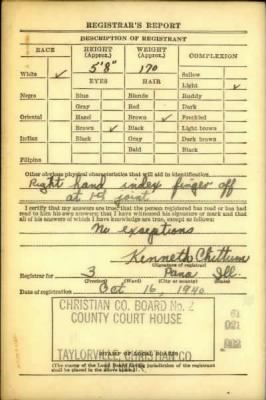 REGISTRAR'S REPORT
DESCRIPTION OF REGISTRANT
RACE HEIGHT (Approx.) WEIGHT (Approx.) COMPLEXION
White ✓ 5'8" 170 Sallow
EYES HAIR Light ✓
Negro Blue Blonde Ruddy
Gray Red Dark
Oriental Hazel Brown ✓ Freckled
Brown ✓ Black Light brown
Indian Black Gray Dark brown
Bald Black
Filipino
Other obvious physical characteristics that will aid in identification
Right hand index finger off
at 1st joint
I certify that my answers are true; that the person registered has read or has had
read to him his own answers; that I have witnessed his signature or mark and that
all of his answers of which I have knowledge are true, except as follows:
No exceptions
Kenneth Chittum
(Signature of registrar)
Registrar for 3 Pana Ill.
(Precinct) (Ward) (City or county) (State)
Date of registration Oct 16, 1940
CHRISTIAN CO. BOARD No. 2
COUNTY COURT HOUSE
61
021
002
TAYLORVILLE, CHRISTIAN CO
(STAMP OF LOCAL BOARD)
(The stamp of the Local Board having jurisdiction of the registrant
shall be placed in the above space.)